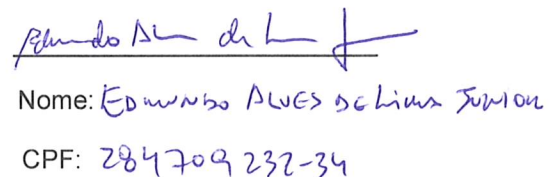 Edmundo Al de L J
Nome: EDMUNDO ALVES DE LIMA JUNIOR
CPF: 284709232-34